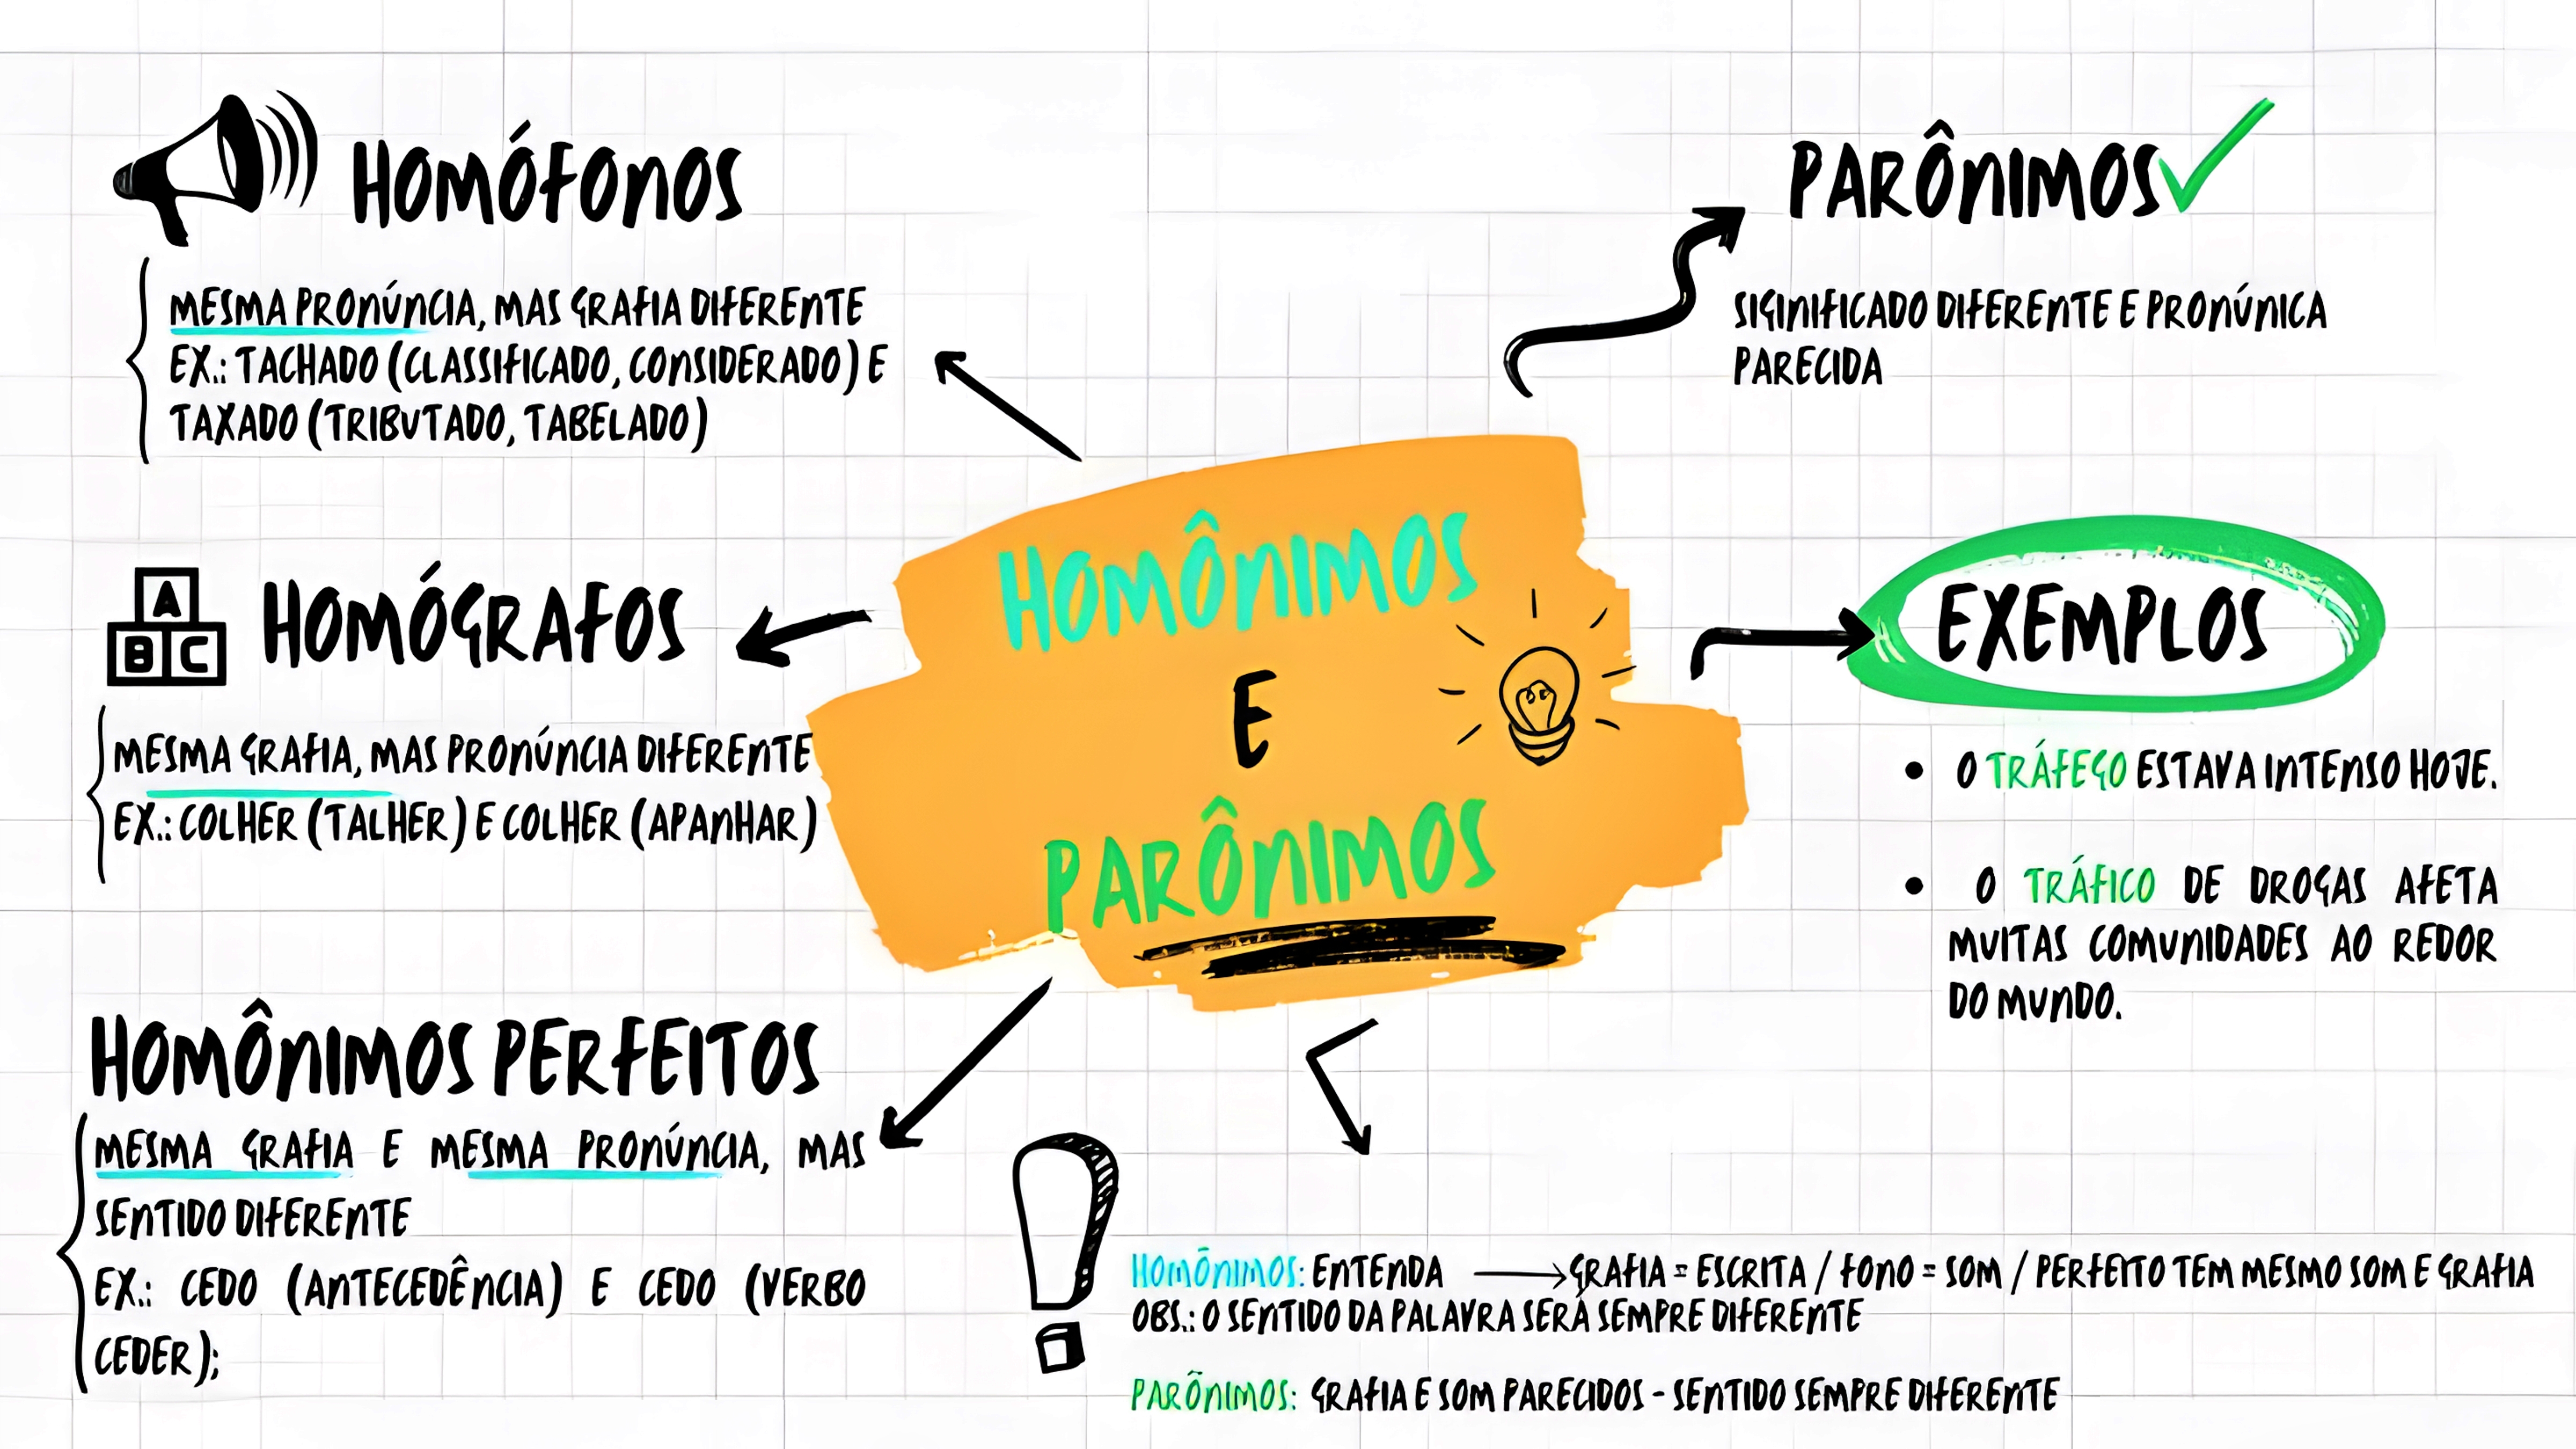 HOMÓFONOS
MESMA PRONÚNCIA, MAS GRAFIA DIFERENTE
EX.: TACHADO (CLASSIFICADO, CONSIDERADO) E
TAXADO (TRIBUTADO, TABELADO)
HOMÓGRAFOS
A
B C
MESMA GRAFIA, MAS PRONÚNCIA DIFERENTE
EX.: COLHER (TALHER) E COLHER (APANHAR)
HOMÔNIMOS PERFEITOS
MESMA GRAFIA E MESMA PRONÚNCIA, MAS
SENTIDO DIFERENTE
EX.: CEDO (ANTECEDÊNCIA) E CEDO (VERBO
CEDER);
HOMÔNIMOS
E
PARÔNIMOS
PARÔNIMOS
SIGINIFICADO DIFERENTE E PRONÚNICA
PARECIDA
EXEMPLOS
• O TRÁFEGO ESTAVA INTENSO HOJE.
• O TRÁFICO DE DROGAS AFETA
MUITAS COMUNIDADES AO REDOR
DO MUNDO.
HOMÔNIMOS: ENTENDA → GRAFIA = ESCRITA / FONO = SOM / PERFEITO TEM MESMO SOM E GRAFIA
OBS.: O SENTIDO DA PALAVRA SERÁ SEMPRE DIFERENTE
PARÔNIMOS: GRAFIA E SOM PARECIDOS - SENTIDO SEMPRE DIFERENTE